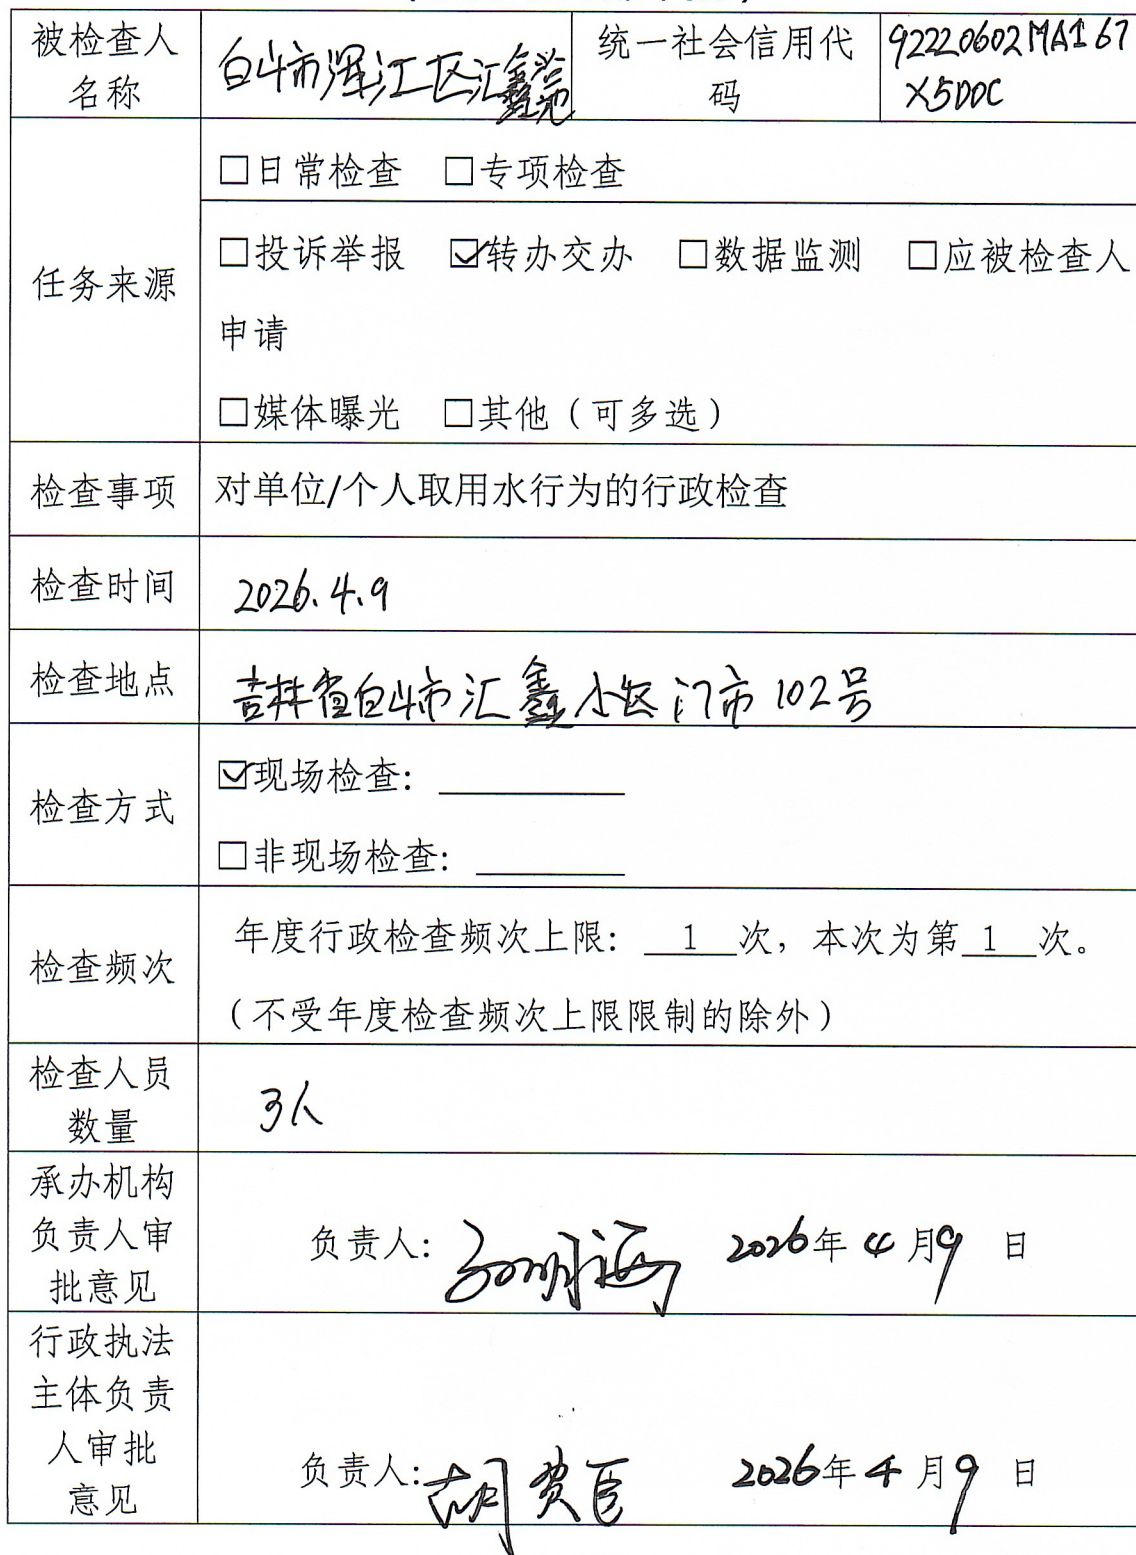 被检查人
名称
白山市浑江区汇鑫浴池
统一社会信用代
码
92220602MA167
X5D0C
任务来源
□日常检查 □专项检查
□投诉举报 ☑转办交办 □数据监测 □应被检查人
申请
□媒体曝光 □其他（可多选）
检查事项
对单位/个人取用水行为的行政检查
检查时间
2026.4.9
检查地点
吉林省白山市汇鑫小区门市102号
检查方式
☑现场检查：
□非现场检查：
检查频次
年度行政检查频次上限： 1 次，本次为第 1 次。
（不受年度检查频次上限限制的除外）
检查人员
数量
3人
承办机构
负责人审
批意见
负责人： 2026年4月9日
行政执法
主体负责
人审批
意见
负责人：胡 2026年4月9日